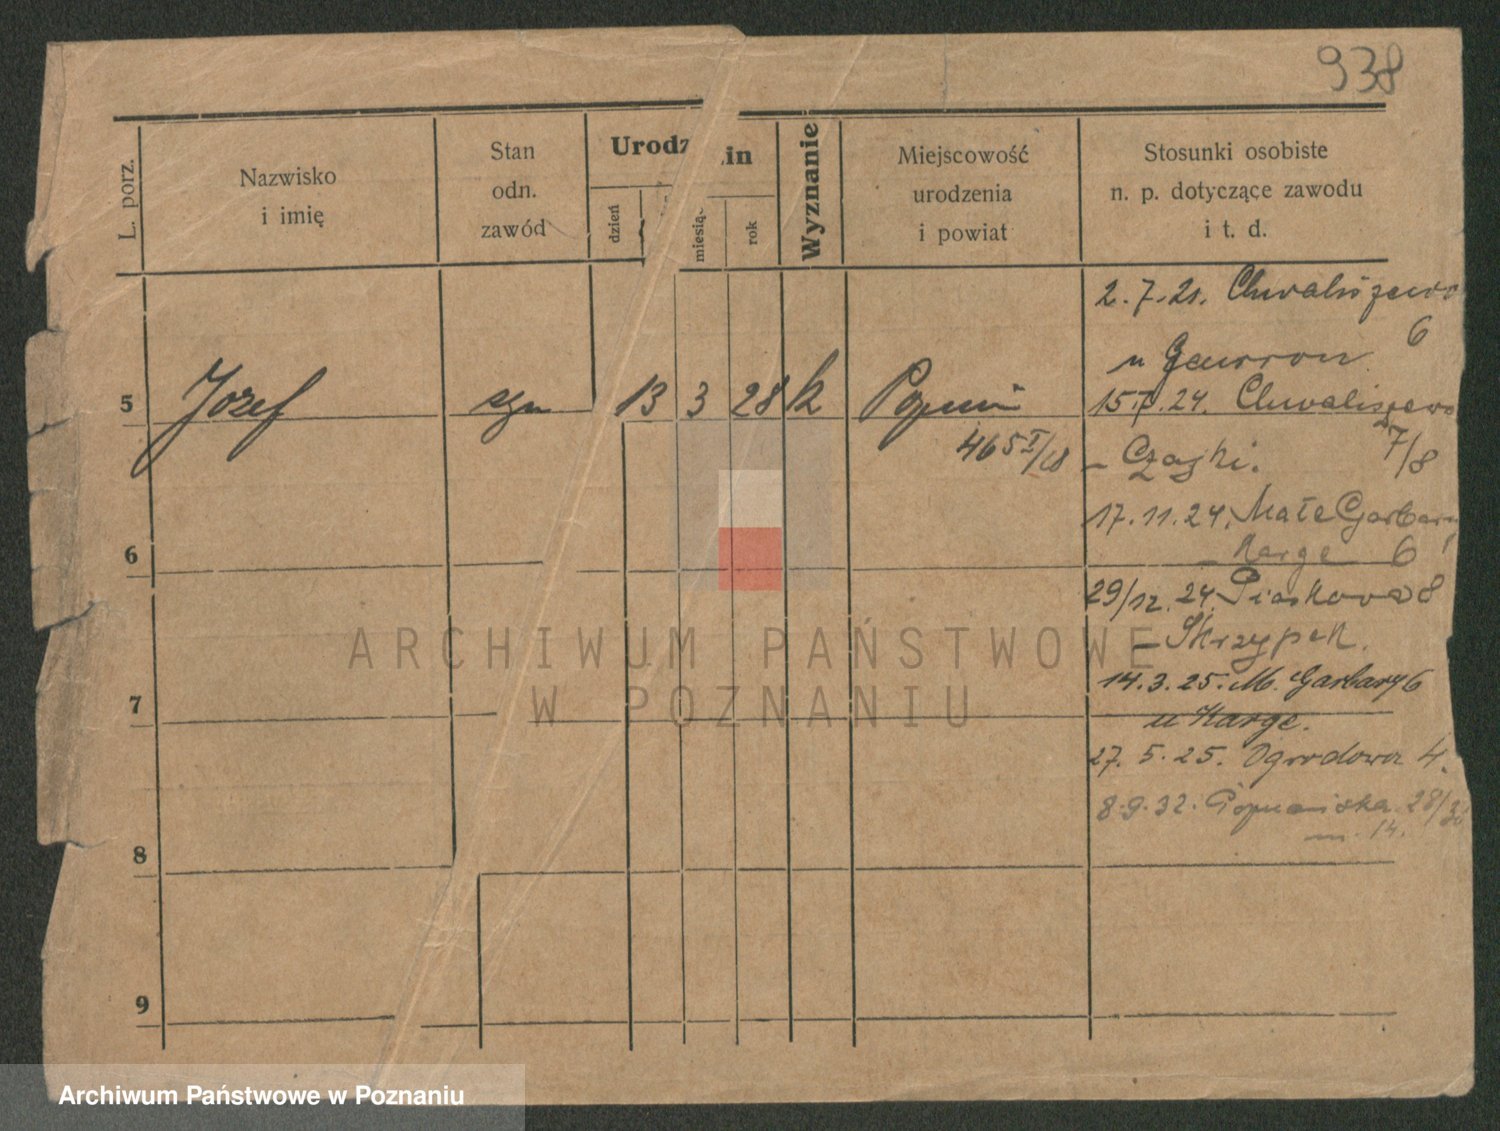 938
L. porz.
Nazwisko
i imię
Stan
odn.
zawód
Urodz in
dzień
miesiąc
rok
Wyznanie
Miejscowość
urodzenia
i powiat
Stosunki osobiste
n. p. dotyczące zawodu
i t. d.
2.7.21. Chwaliszewo
6
u
5 Józef syn 13 3 28 k
15 . 24. Chwaliszewo
7/8
17.11.24. Małe Garbary
Karge 6
6
29/12. 24. Piaskowa 8
– Skrzypek.
14.3.25. M. Garbary 6
7
u Karge.
27. 5. 25. Ogrodowa 4.
8.9.32.
m. 14.
8
9
ARCHIWUM PAŃSTWOWE
W POZNANIU
Archiwum Państwowe w Poznaniu